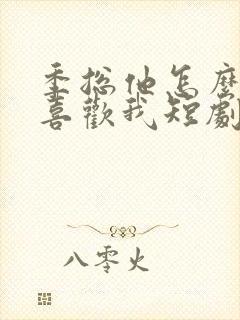 季总他怎麼
喜歡我短劇
八零火